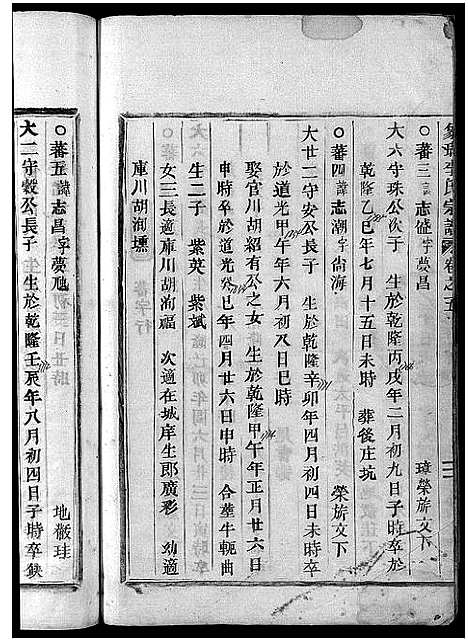 李氏宗譜 卷之五
○蕃三 諱志 字夢昌 璋榮旂文下
大六守珠公次子 生於乾隆丙戌年二月初九日子時卒於
乾隆乙巳年七月十五日未時 葬後庄坑
○蕃四 諱志潮字尚海 榮旂文下
大廿二守安公長子 生於乾隆辛卯年四月初四日未時卒
於道光甲午年六月初八日巳時
娶官川胡紹有公之女 生於乾隆甲午年正月廿六日
申時卒於道光癸巳年四月廿六日申時 合塟牛軛曲
生二子 紫英 紫斌
女三長適庫川胡洵福 次適在城庠生郎廣彩 幼適
庫川胡洵壎
○蕃五 諱志昌字夢 地儆珪
大二守穀公長子 生於乾隆壬辰年八月初四日子時卒缺